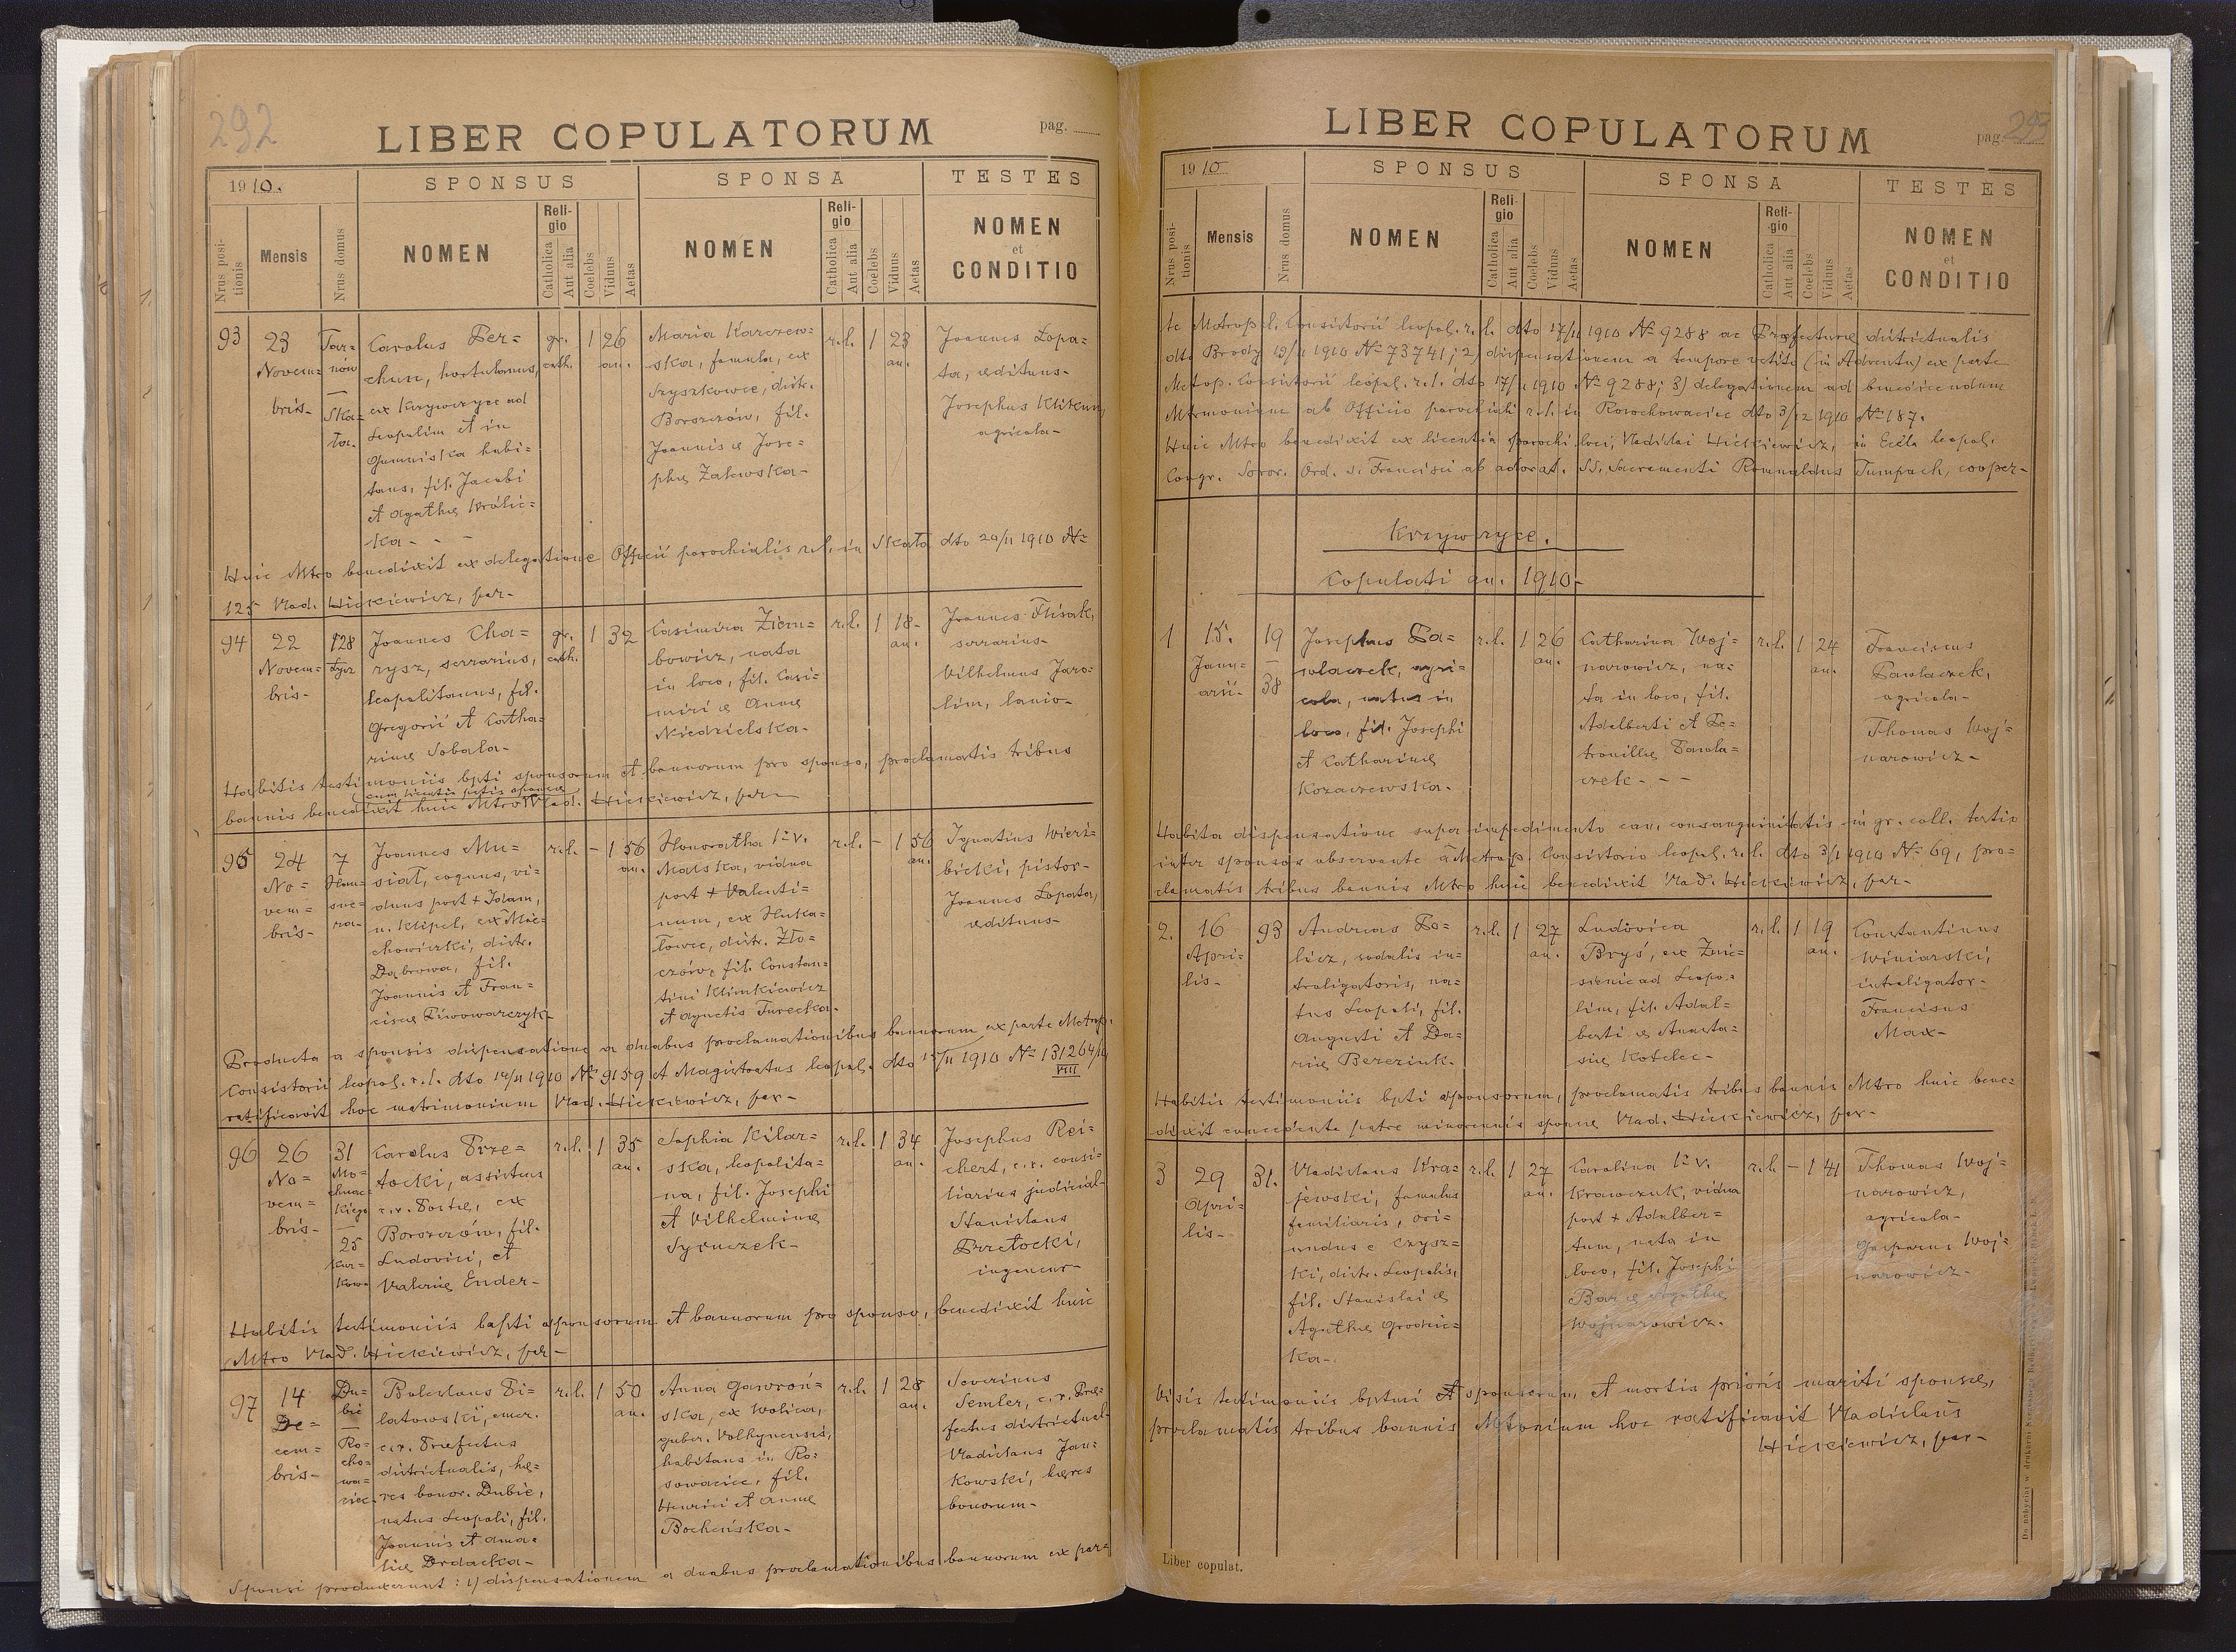 292
LIBER COPULATORUM
pag.
1910.
SPONSUS
SPONSA
TESTES
Nrus positionis
Mensis
Nrus domus
NOMEN
Religio
Catholica
Aut alia
Coelebs
Viduus
Aetas
NOMEN
Religio
Catholica
Aut alia
Coelebs
Viduus
Aetas
NOMEN
et
CONDITIO
93
23
Novem=
bris-
Tar=
nów
Ska=
ła.
Carolus Ber=
chun, hortulanus,
ex Krzywczyce ad
Leopolim et in
Gumniska habi=
tans, fil. Jacobi
et Agathæ Królic=
ka - - -
gr.
cath.
1
26
an.
Maria Karczew=
ska, famula, ex
Szyszkowce, distr.
Borszczów, fil.
Joannis & Jose=
phæ Zalewska-
r.l.
1
23
an.
Joannes Łopa=
ta, ædituus-
Josephus
agricola-
Huic Mtro benedixit ex delegatione Officii parochialis r.l. in Skała dto 20/11 1910 №
125 Vlad. Hickiewicz, par-
94
22
Novem=
bris-
128
Łycz
Joannes Cha=
rysz, serrarius,
Leopolitanus, fil.
Gregorii et Catha=
rinæ Sobala-
gr.
cath.
1
32
Casimira Ziem=
bowicz, nata
in loco, fil. Casi=
miri & Annæ
Niedzielska-
r.l.
1
18-
an.
Joannes Flisak,
serrarius-
Vilhelmus Jaro=
lim, lanio-
Habitis testimoniis bpti sponsorum et bannorum pro sponso, proclamatis tribus
bannis benedixit huic Mtro Vlad. Hickiewicz, par-
95
24
No=
vem=
bris-
7
Joannes Mu=
siał, coquus, vi=
duus post + Idam,
n. Klipel, ex Mie=
chowiczki, distr.
Dąbrowa, fil.
Joannis et Fran=
ciscæ Piwowarczyk-
r.l.
-
1
56
an.
Honoratha 1º v.
Malska, vidua
post + Valenti=
num, ex Huka=
łowce, distr. Zło=
czów, fil. Constan=
tini Klimkiewicz
et Agnetis Turecka-
r.l.
-
1
56
an.
Ignatius Wierz=
bicki, pistor-
Joannes Łopata,
ædituus-
Producta a sponsis dispensatione a duabus proclamationibus bannorum ex parte Metrop.
Consistorii leopol. r.l. dto 14/11 1910 № 9159 et Magistratus leopol. dto 1910 № 131264/10
VIII
ratificavit hoc matrimonium Vlad. Hickiewicz, par-
96
26
No=
vem=
bris-
31
Mo=
chnac=
kiego
25
Kur=
kowa
Carolus Prze=
tocki, assistens
c.r. Postæ, ex
Borszczów, fil.
Ludovici, et
Valeriæ Ender-
r.l.
1
35
an.
Sophia Kilar=
ska, leopolita=
na, fil. Josephi
et Vilhelminæ
Syruczek-
r.l.
1
34
an.
Josephus Rei=
chert, c.r. consi=
liarius judicial-
Stanislaus
Przetocki,
ingeneur-
Habitis testimoniis bapti sponsorum et bannorum pro sponso, benedixit huic
Mtro Vlad. Hickiewicz, par-
97
14
De=
cem=
bris-
Du=
bie
Ro=
cho=
wa=
ciec.
Boleslaus Pi=
latowski, emer.
c.r. Præfectus
districtualis, hæ=
res bonor. Dubie,
natus Leopoli, fil.
Joannis et Ama=
liæ Drdacka-
r.l.
1
50
an.
Anna Gawroń=
ska, ex Wolica,
guber. Volhynensis,
habitans in Ro=
sowaciec, fil.
Henrici et Annæ
Bocheńska-
r.l.
1
28
an.
Severinus
Semler, c.r. Præ=
fectus districtual-
Vladislaus Jan=
kowski, hæres
bonorum-
Sponsi produxerunt: 1) dispensationem a duabus proclamationibus bannorum ex par=
LIBER COPULATORUM
pag. 293
1910
SPONSUS
SPONSA
TESTES
Nrus positionis
Mensis
Nrus domus
NOMEN
Religio
Catholica
Aut alia
Coelebs
Viduus
Aetas
NOMEN
Religio
Catholica
Aut alia
Coelebs
Viduus
Aetas
NOMEN
et
CONDITIO
te Metropol. Consistorii leopol. r.l. dto 17/11 1910 № 9288 ac Præfecturæ districtualis
dto Brody 19/11 1910 № 73741; 2) dispensationem a tempore vetito (in Adventu) ex parte
Metrop. Consistorii leopol. r.l. dto 17/11 1910 № 9288; 3) delegationem ad benedicendum
Mtrmonium ab Officio parochiali r.l. in Rosochowaciec dto 3/12 1910 № 187.
Huic Mtro benedixit ex licentia parochi loci, Vladislai Hickiewicz, in Eccla leopol.
Congr. Soror. Ord. S. Francisci ab adorat. SS. Sacramenti Romualdus Tumpach, cooper-
Krzywczyce.
Copulati an. 1910-
1
15.
Janu=
arii-
19
38
Josephus Pa=
wlaczek, agri=
cola, natus in
loco, fil. Josephi
et Catharinæ
Kozaczewska.
r.l.
1
26
an.
Catharina Woj=
narowicz, na=
ta in loco, fil.
Adalberti et Pe=
tronillæ Pawla=
czek - - -
r.l.
1
24
an.
Franciscus
Pawlaczek,
agricola-
Thomas Woj=
narowicz-
Habita dispensatione super impedimento can. consanguinitatis in gr. coll. tertio
inter sponsos observante a Metrop. Consistorio leopol. r.l. dto 3/1 1910 № 69, pro=
clamatis tribus bannis Mtro huic benedixit Vlad. Hickiewicz, par-
2.
16
Apri=
lis-
93
Andreas Po=
licz, sodalis in=
troligatoris, na=
tus Leopoli, fil.
Augusti et Da=
riæ Bereziuk-
r.l.
1
27
an.
Ludovica
Bryś, ex Znie=
sienie ad Leopo=
lim, fil. Adal=
berti & Anasta=
siæ Kotelec-
r.l.
1
19
an.
Constantinus
Winiarski,
introligator-
Franciscus
Max-
Habitis testimoniis bpti sponsorum, proclamatis tribus bannis Mtro huic bene=
dixit concedente patre minorennis sponsæ Vlad. Hickiewicz, par-
3
29
Apri=
lis-
31.
Vladislaus Kra=
jewski, famulus
familiaris, ori=
undus e Czysz=
ki, distr. Leopolis,
fil. Stanislai &
Agathæ Grodnic=
ka-
r.l.
1
27
an.
Carolina 1º v.
Krawczuk, vidua
post + Adalber=
tum, nata in
loco, fil. Josephi
Bar & Agathæ
Wojnarowicz-
r.l.
-
1
41
Thomas Woj=
narowicz,
agricola-
Gasparus Woj=
narowicz-
Visis testimoniis bptmi et sponsorum et mortis prioris mariti sponsæ,
proclamatis tribus bannis Mtronium hoc ratificavit Vladislaus
Hickiewicz, par-
Liber copulat.